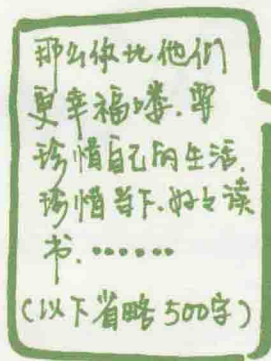 那么你比他们
更幸福喽.要
珍惜自己的生活.
珍惜当下.好々读
书.……
(以下省略500字)